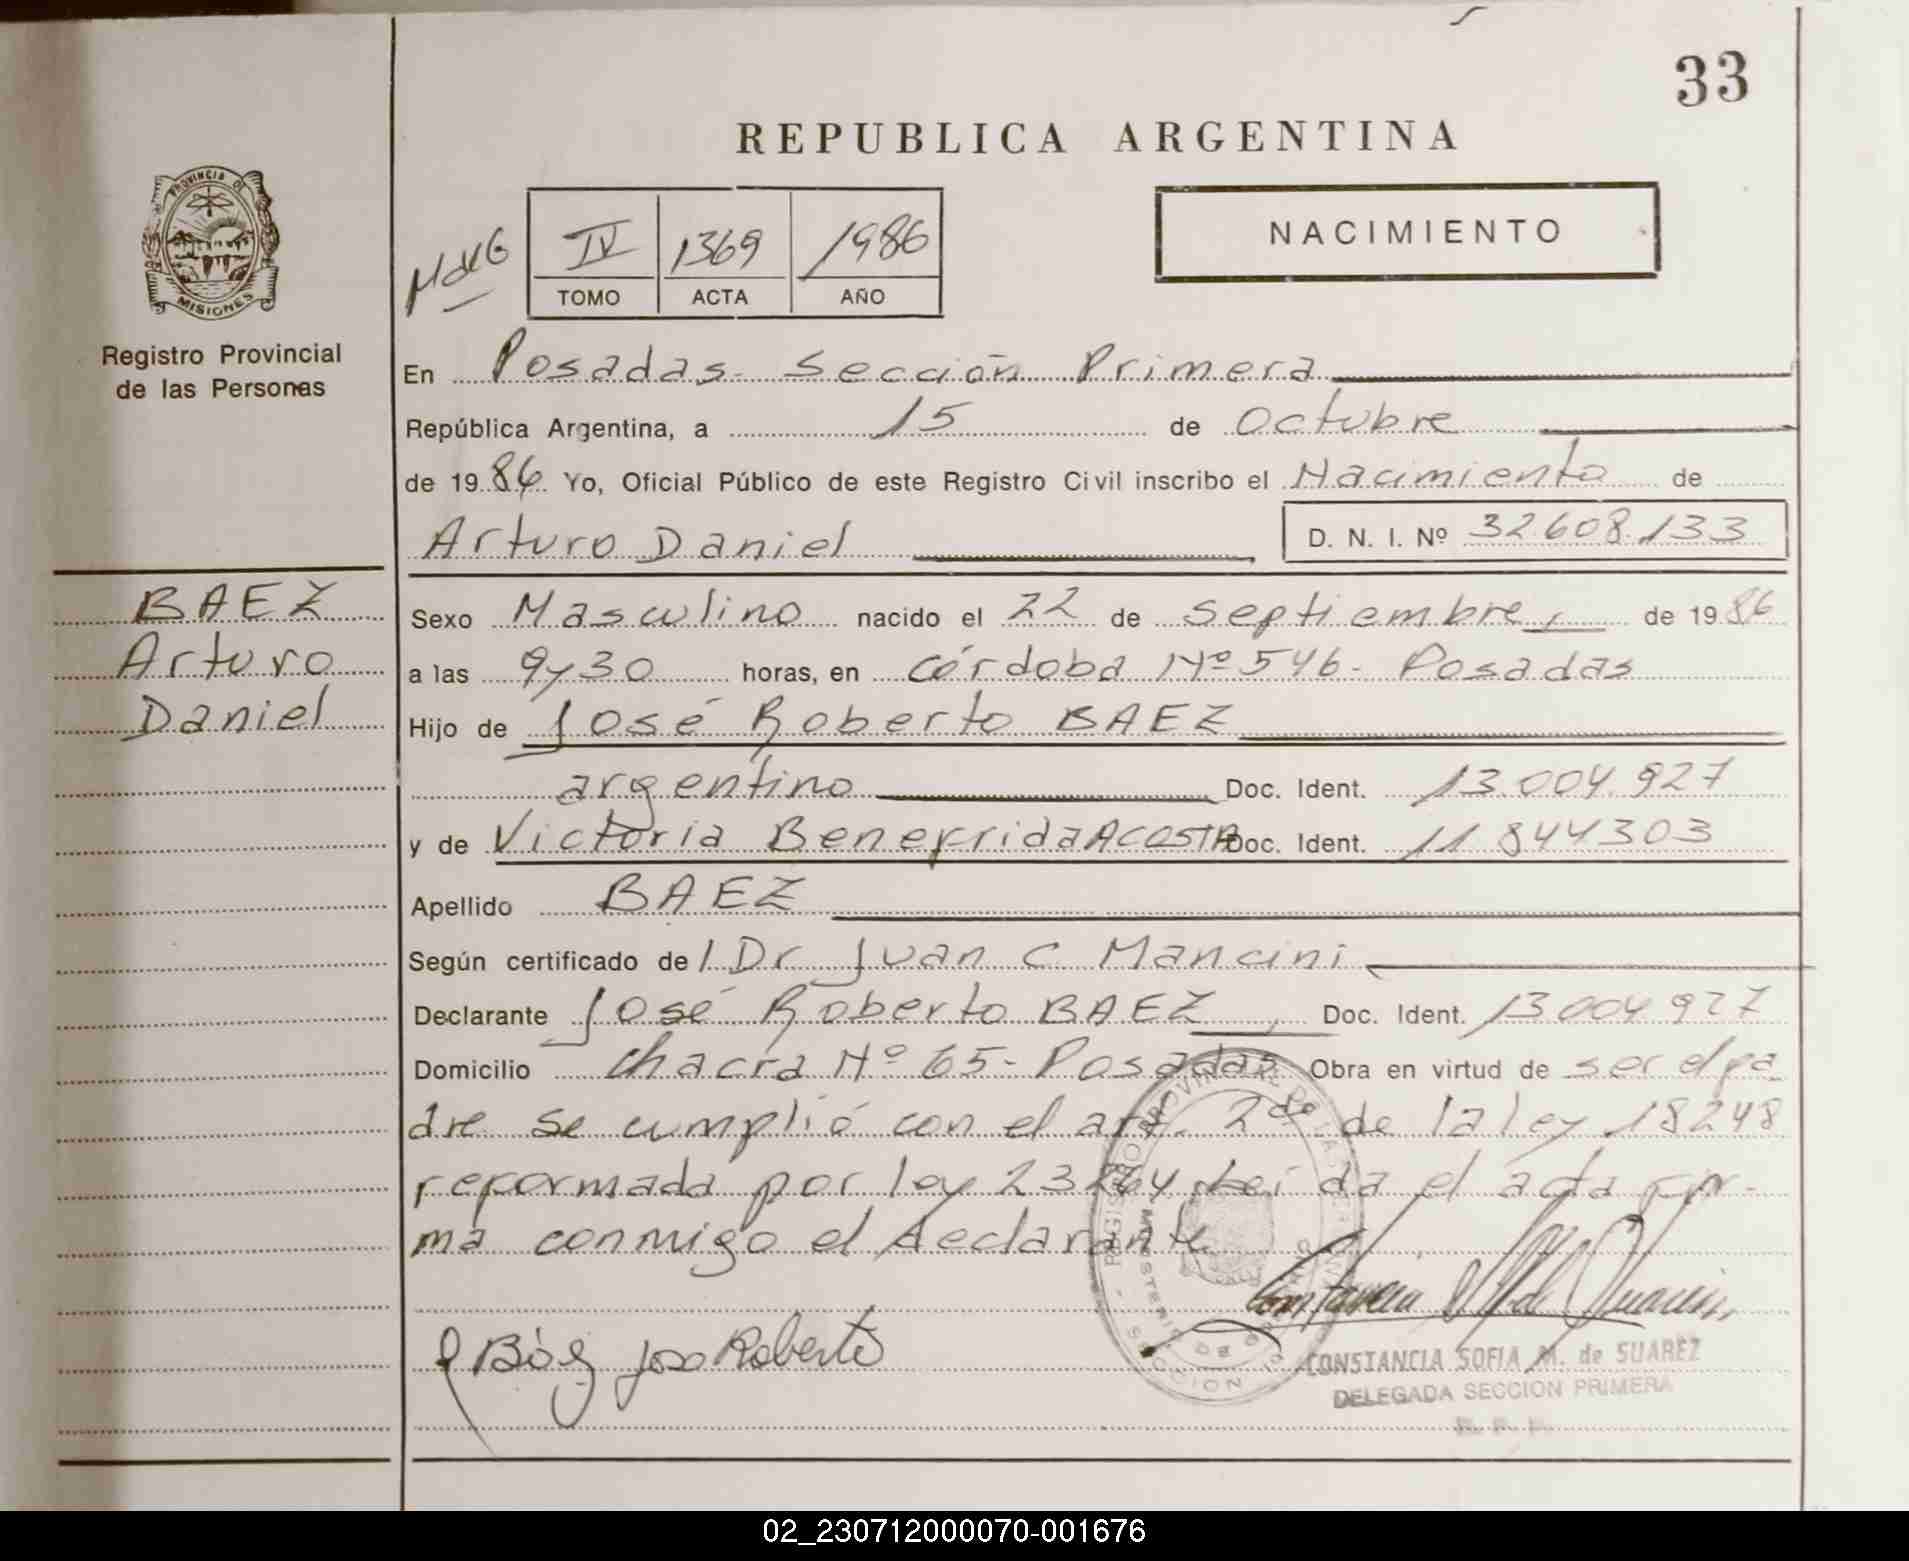 33
REPUBLICA ARGENTINA
PROVINCIA DE
MISIONES
Registro Provincial
de las Personas
IV 1369 1986
TOMO ACTA AÑO
NACIMIENTO
En Posadas. Sección Primera
República Argentina, a 15 de Octubre
de 1986 Yo, Oficial Público de este Registro Civil inscribo el Nacimiento de
Arturo Daniel D. N. I. Nº 32.608.133
BAEZ
Arturo
Daniel
Sexo Masculino nacido el 22 de septiembre, de 1986
a las 9y30 horas, en Córdoba Nº 546- Posadas
Hijo de José Roberto BAEZ
argentino Doc. Ident. 13.004.927
y de Victoria Benefrida ACOSTA Doc. Ident. 11.844303
Apellido BAEZ
Según certificado del Dr Juan C Mancini
Declarante José Roberto BAEZ, Doc. Ident. 13004927
Domicilio chacra Nº 65- Posadas Obra en virtud de ser el pa
dre se cumplió con el art. 2do de la ley 18248
reformada por ley 23264 Leída el acta fir-
ma conmigo el declarante
Jose Roberto
CONSTANCIA SOFIA M. de SUAREZ
DELEGADA SECCION PRIMERA
R. P. P.
02_230712000070-001676